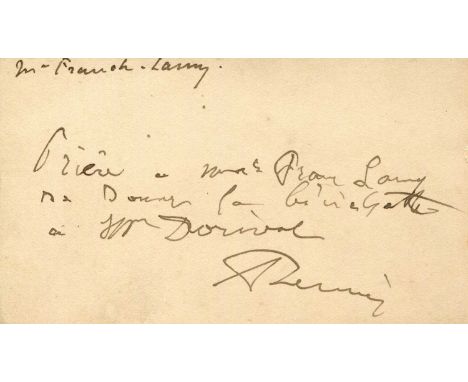 Mr Franck-Lamy.
Prière a Franc Lamy
de Donner la bicyclette
a Mr Dorival
Renoir